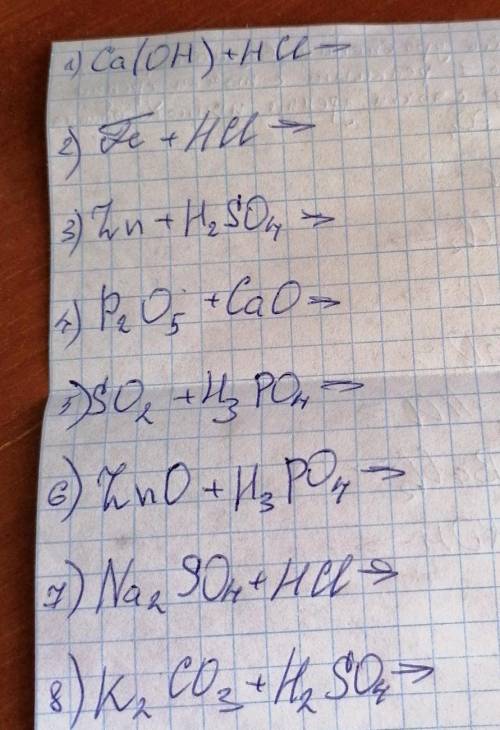 1) Ca(OH) + HCl →
2) Fe + HCl →
3) Zn + H₂SO₄ →
4) P₂O₅ + CaO →
5) SO₂ + H₃PO₄ →
6) ZnO + H₃PO₄ →
7) Na₂SO₄ + HCl →
8) K₂CO₃ + H₂SO₄ →